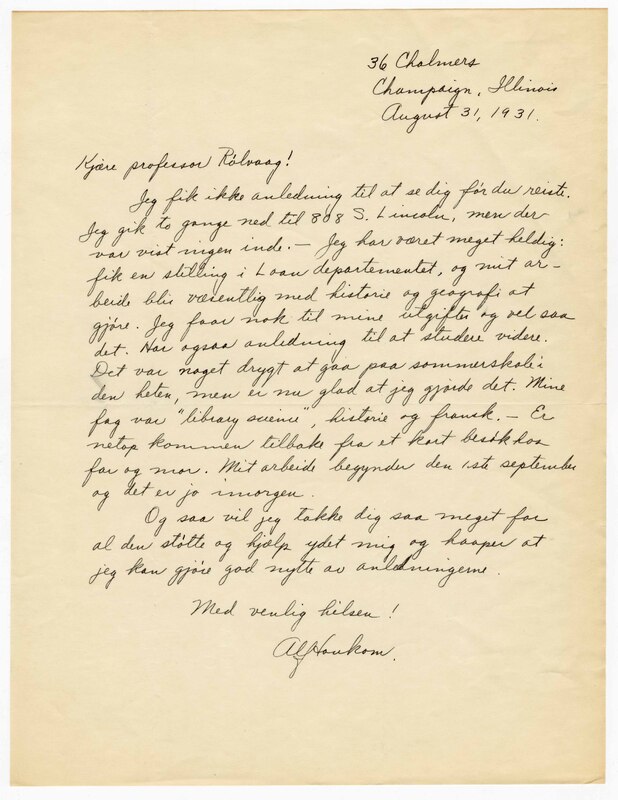 36 Chalmers
Champaign, Illinois
August 31, 1931.
Kjære professor Rölvaag!
Jeg fik ikke anledning til at se dig før du reiste.
Jeg gik to gange ned til 808 S. Lincoln, men der
var vist ingen inde. — Jeg har været meget heldig:
fik en stilling i Loan departementet, og mit ar-
beide blir væsentlig med historie og geografi at
gjøre. Jeg faar nok til mine utgifter og vel saa
det. Har ogsaa anledning til at studere videre.
Det var noget drygt at gaa paa sommerskole i
den heten, men er nu glad at jeg gjorde det. Mine
fag var "library science", historie og fransk. — Er
netop kommen tilbake fra et kort besøk hos
far og mor. Mit arbeide begynder den 1ste september
og det er jo imorgen.
Og saa vil jeg takke dig saa meget for
al den støtte og hjælp ydet mig og haaper at
jeg kan gjøre god nytte av anledningerne.
Med venlig hilsen!
Alf Houkom.